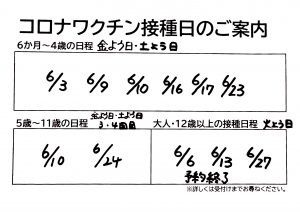 コロナワクチン接種日のご案内
6か月～4歳の日程 金よう日・土よう日
6/3 6/9 6/10 6/16 6/17 6/23
5歳～11歳の日程 金よう日・土よう日
3・4回目
6/10 6/24
大人・12歳以上の接種日程 火よう日
6/6 6/13 6/27
予約終了
※詳しくは受付けまでお尋ねください。